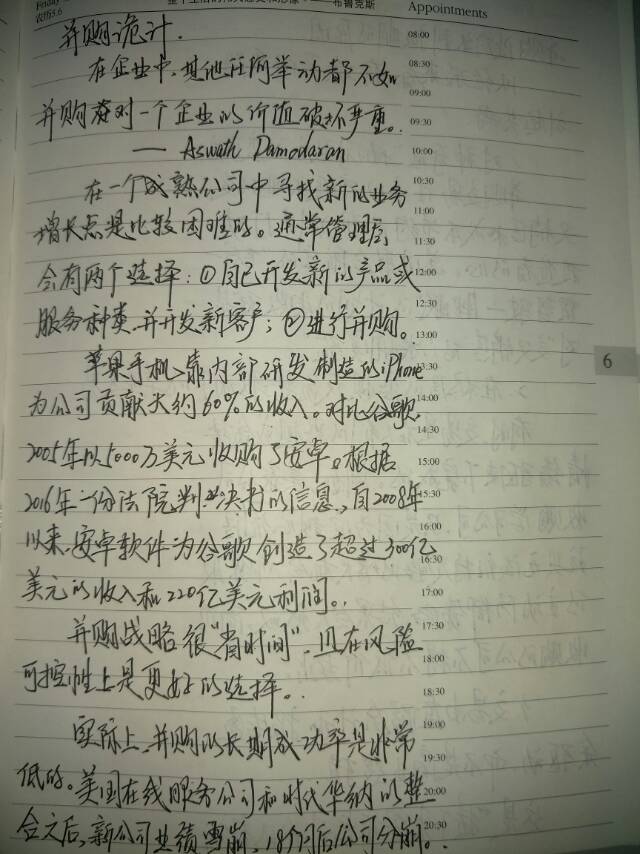 Friday
农历5.6
布鲁克斯
Appointments
并购诡计.
在企业中,其他任何举动都不如
并购对一个企业的价值破坏严重。
— Aswath Damodaran
在一个成熟公司中寻找新的业务
增长点是比较困难的。通常管理层
会有两个选择:①自己开发新的产品或
服务种类,并开发新客户;②进行并购。
苹果手机、靠内部研发制造的iPhone
为公司贡献大约60%的收入。对比谷歌,
2005年以5000万美元收购了安卓。根据
2016年一份法院判决书的信息,自2008年
以来,安卓软件为谷歌创造了超过300亿
美元的收入和220亿美元利润。
并购战略很"省时间",且在风险
可控性上是更好的选择。
实际上,并购的长期成功率是非常
低的。美国在线服务公司和时代华纳的整
合之后,新公司业绩雪崩,18个月后公司分崩。
08:00
08:30
09:00
09:30
10:00
10:30
11:00
11:30
12:00
12:30
13:00
13:30
14:00
14:30
15:00
15:30
16:00
16:30
17:00
17:30
18:00
18:30
19:00
19:30
20:00
20:30
6